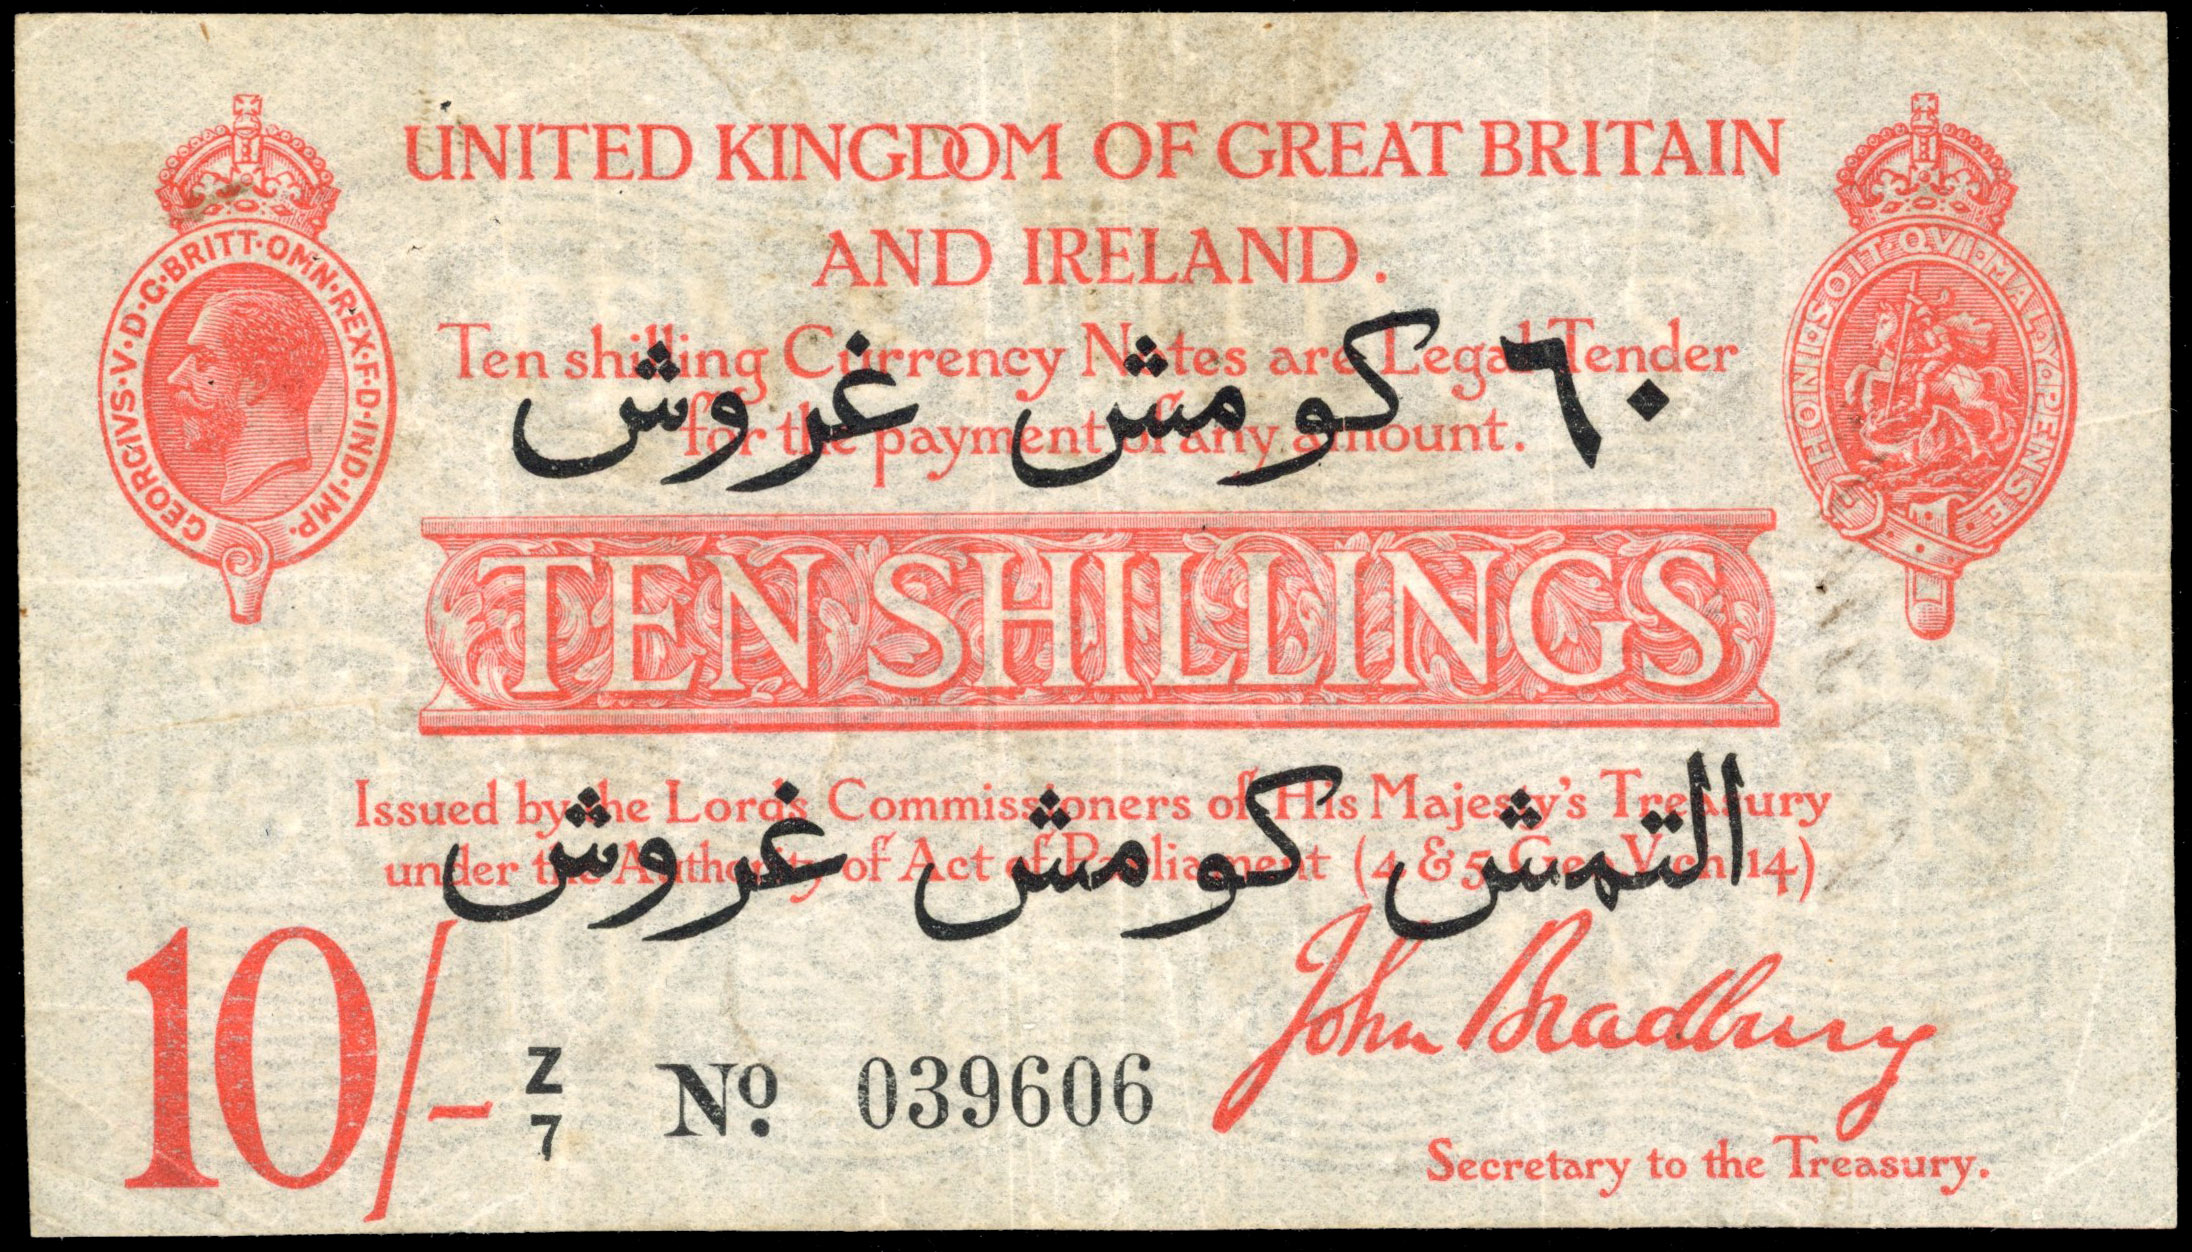 UNITED KINGDOM OF GREAT BRITAIN
AND IRELAND.
GEORGIVS·V·D·G·BRITT·OMN·REX·F·D·IND·IMP.
HONI·SOIT·Q·VI·MAL·Y·PENSE
Ten shilling Currency Notes are Legal Tender
for the payment of any amount.
٦٠ كومش غروش
TEN SHILLINGS
Issued by the Lords Commissioners of His Majesty's Treasury
under the Authority of Act of Parliament (4 & 5 Geo. V. ch. 14)
التمش كومش غروش
10/-
Z
7
No. 039606
John Bradbury
Secretary to the Treasury.